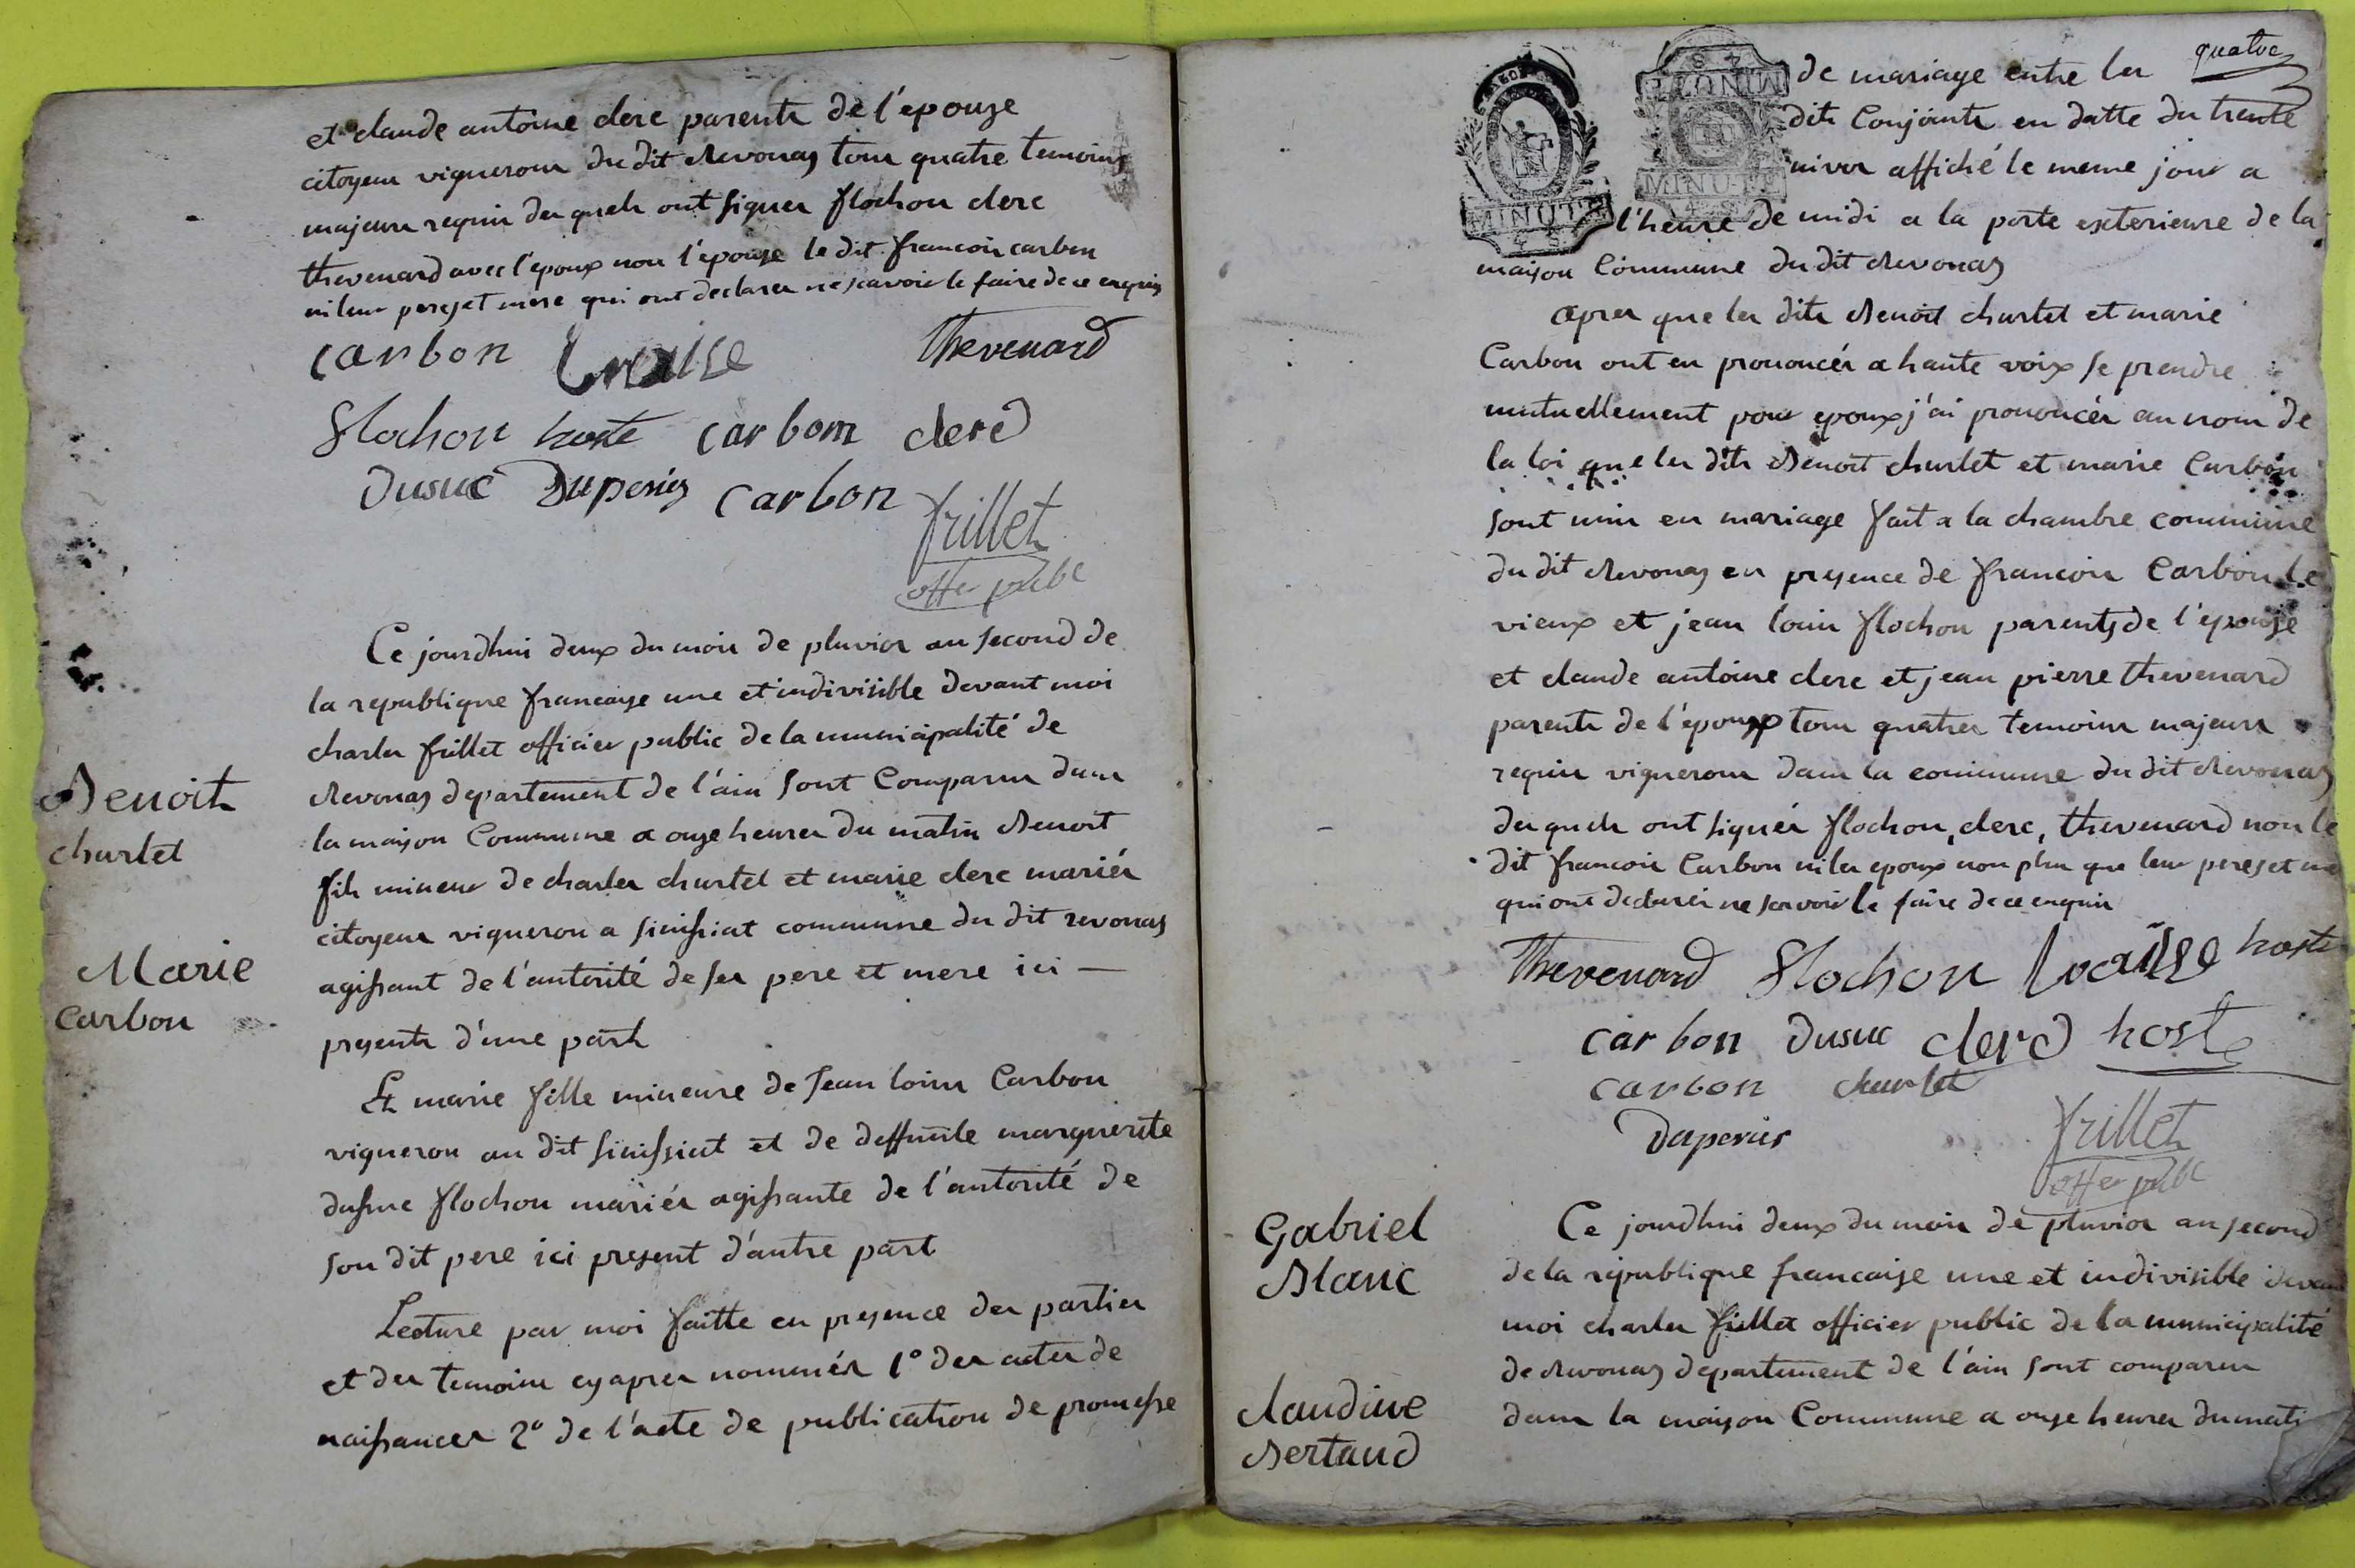 et claude antoine clerc parents de l'epouze
citoyens vignerons du dit Revonas tous quatre temoins
majeurs requis des quels ont signer flochon clerc
thevenard avec l'epoux non l'epouse le dit francois carbon
ni leur peres et mere qui ont declarer ne scavoir le faire de ce enquis
carbon Thevenard
flochon hoste carbom clerc
Dusuc Duperies carbon
frillet
offer publc
Ce jourdhui deux du mois de pluvios an second de
la republique francaise une et indivisible devant moi
charles frillet officier public de la municipalité de
Revonas departement de l'ain sont Comparus dans
la maison Commune a onze heures du matin Benoit
fils mineur de charles churlet et marie clerc mariés
citoyens vigneron a simissiat commune du dit revonas
agissant de l'autorité de ses pere et mere ici —
presents d'une part
Et marie fille mineure de Jean louis Carbon
vigneron au dit simissiat et de deffunte marguerite
dufme flochon mariés agissante de l'autorité de
son dit pere ici present d'autre part
Lecture par moi faitte en presence des parties
et des temoins cy apres nommés 1° des actes de
naissances 2° de l'acte de publication de promesse
Benoit
churlet
Marie
Carbon
quatre
de mariage entre les
dits Conjoints en datte du trente
nivos affiché le meme jour a
MINUTE
MINUTE
l'heure de midi a la porte exterieure de la
maison Commune du dit Revonas
apres que les dits Benoit churlet et marie
Carbon ont eu prononcés a haute voix se prendre
mutuellement pour epoux j'ai prononcér au nom de
la loi que les dits Benoit churlet et marie Carbon
sont unis en mariage fait a la chambre commune
du dit Revonas en presence de francois Carbon le
vieux et jean louis flochon parents de l'epouse
et claude antoine clerc et jean pierre thevenard
parents de l'epoux tous quatres temoins majeurs
requis vignerons dans la commune du dit Revonas
des quels ont signés flochon, clerc, thevenard non le
dit francois Carbon ni les epoux non plus que leur peres et
qui ont declarés ne scavoir le faire de ce enquis
Thevenard flochon hoste
carbon Dusuc clerc hoste
carbon churlet
Duperies
frillet
offer publc
Ce jourdhui deux du mois de pluvios an second
de la republique francaise une et indivisible devant
moi charles frillet officier public de la municipalité
de Revonas departement de l'ain sont comparus
dans la maison Commune a onze heures du mati
Gabriel
Blanc
Claudine
Bertaud